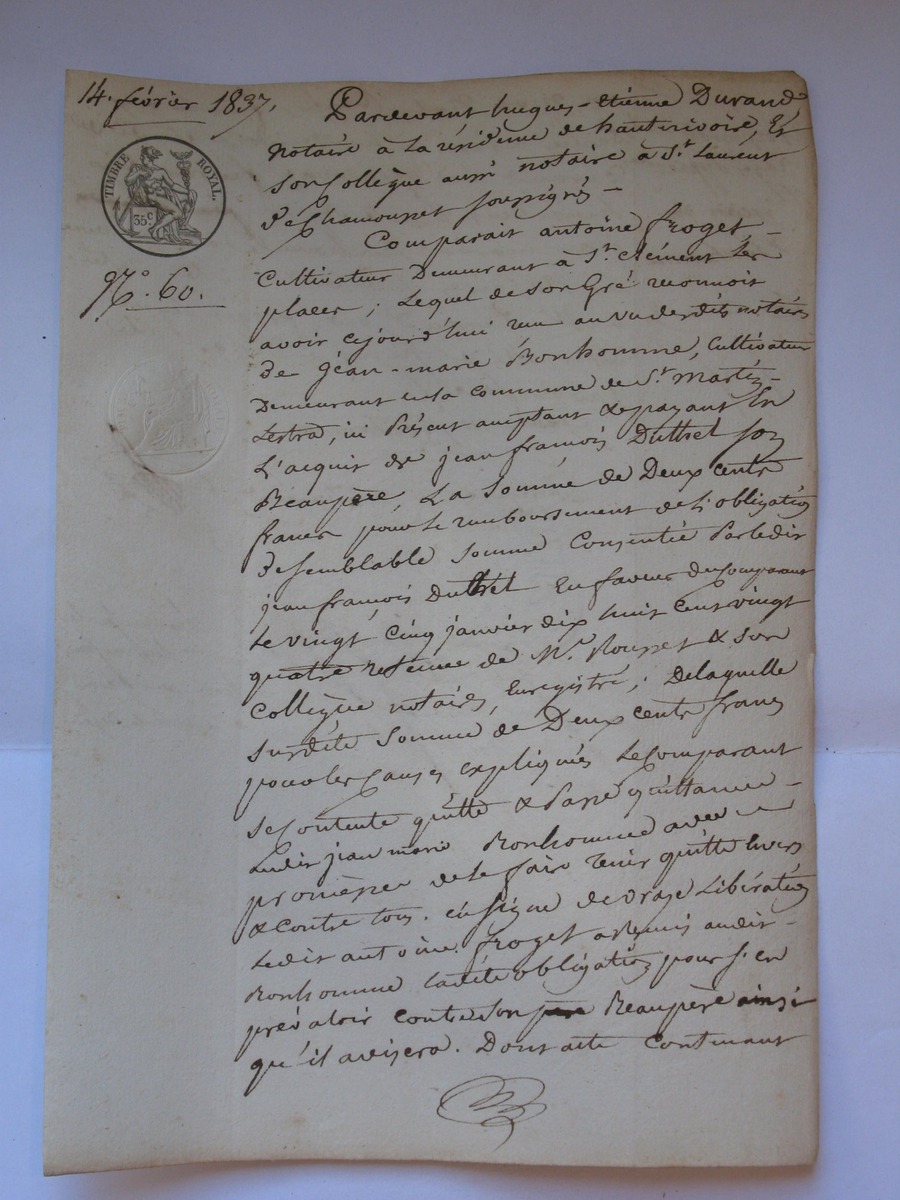 14. février 1837.
TIMBRE ROYAL.
35 c
N.° 60.
Pardevant hugues-etienne Durand
Notaire à La résidence de hauterivoire, Et
son Collègue aussi notaire à S.t Laurent
de Chamousset soussignés –
Comparait antoine froget –
Cultivateur Demeurant à S.t Clément Les
places ; Lequel de son Gré reconnoit
avoir cejourd'hui reçu au vu desdits notaires
De jean-marie Bonhomme, Cultivateur
Demeurant en la commune de S.t Martin-
Lestra, ici Présent acceptant & payant En
L'acquit de jean françois Duthel son
Beaupère, La Somme de Deux cents
francs pour le remboursement de L'obligation
de semblable somme Consentie Par ledit
jean françois Duthel En faveur du Comparant
Le vingt cinq janvier dix huit cent vingt
quatre reçue de M.e Rousset & son
Collègue notaires, Enregistré ; De laquelle
susdite Somme de Deux cents francs
pour les causes expliquées Le Comparant
se Contente quitte & Passe quittance –
audit jean marie Bonhomme avec –
promesse de le faire tenir quitte Envers
& contre tous. En Signe de vraye Libération
Ledit antoine froget a remis audit –
Bonhomme Ladite obligation pour s'en
prévaloir contre son Beaupère ainsi
qu'il avisera. Dont acte Contenant